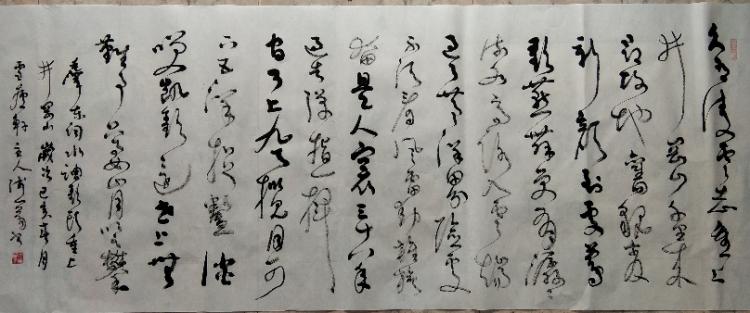 久有凌云志重上
井岡山千里来
尋故地舊貌变
新颜到處莺
歌燕舞更有潺潺
流水高路入雲端
过了黄洋界險處
不須看风雷动旌旗
奮是人寰三十八年
过去弹指一挥
间可上九天揽月可
下五洋捉鳖谈
笑凯歌还世上無
難事只要肯登攀
东詞水调歌头重上
井岡山歲次己亥春月
軒主人